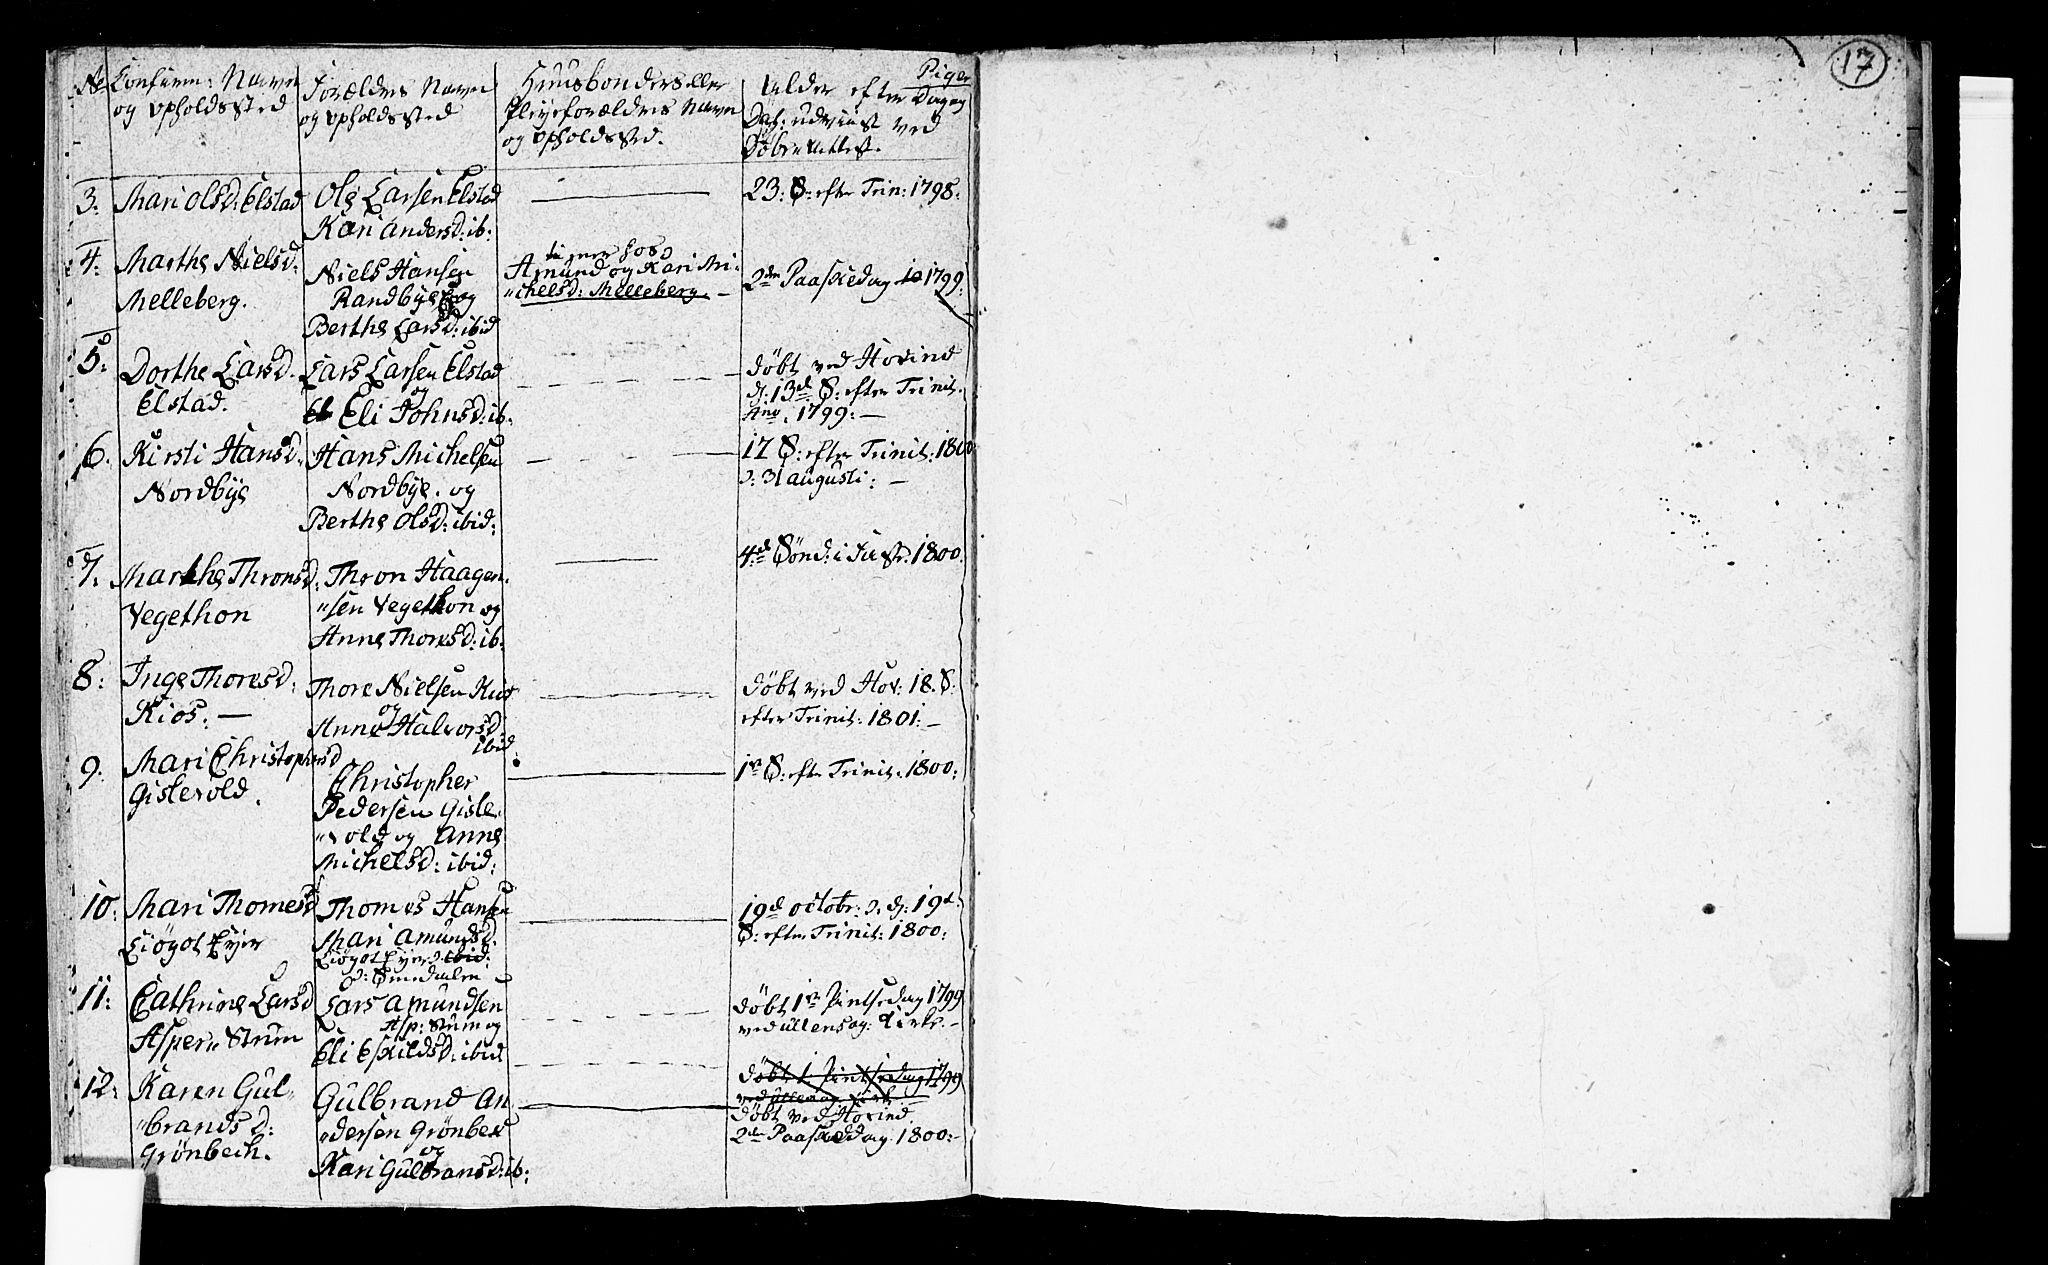 Piger
17
No Confirm: Navn
og opholdssted
Forældres Navn
og opholdssted
Huusbonders eller
Pleyeforældres Navn
og opholdssted.
Alder efter Dag og
ved
Døbe Attest.
3. Mari Olsd: Elstad
Ole Larsen Elstad
Kari Andersd: ib:
23. S: efter Trin: 1798.
4. Marthe Nielsd:
Melleberg.
Niels Hansen
Randbye og
Berthe Larsd: ibid
tiener hos
Amund og Kari Mi-
"chelsd: Melleberg. -
2den Paaskedag 1799.
5. Dorthe Larsd.
Elstad.
Lars Larsen Elstad
og
Eli Johnsd: ib.
døbt ved Hovind
d: 13d S: efter Trinit.
Ano. 1799. -
6. Kirsti Hansd.
Nordbye
Hans Michelsen
Nordbye. og
Berthe Olsd: ibid:
17 S: efter Trinit: 1800
d: 31 augusti: -
7. Marthe Thronsd.
Vegethon
Thron Haagen-
"sen Vegethon og
Anne Thoresd: ib.
4d Sønd: i Fast: 1800.
8. Inge Thoresd:
Kios. -
Thore Nielsen Kios
og
Anne Halvorsd
ibid.
døbt ved Hov: 18. S:
efter Trinit: 1801. -
9. Mari Christophersd
Gislevold.
Christopher
Pedersen Gisle-
"vold og Anne
Michelsd: ibid:
1n S: efter Trinit. 1800:
10. Mari Thomesd
Liøgot Eyer
Thomes Hansen
Mari Amundsd.
Liøgot Eyer ibid:
19d octobr: d. d: 19d.
S: efter Trinit: 1800:
11. Cathrine Larsd
Asper" Strøm
Lars Amundsen
Asp: Strøm og
Eli Eskildsd: ibid
døbt 1n Pintsedag 1799
ved Ullensag: Kirke. -
12. Karen Gul-
"brandsd:
Grønbech.
Gulbrand An-
"dersen Grønbek
og
Kari Gulbransd: ib:
døbt 1. Pintsedag 1799
døbt ved Hovind
2den Paaskedag. 1800. -